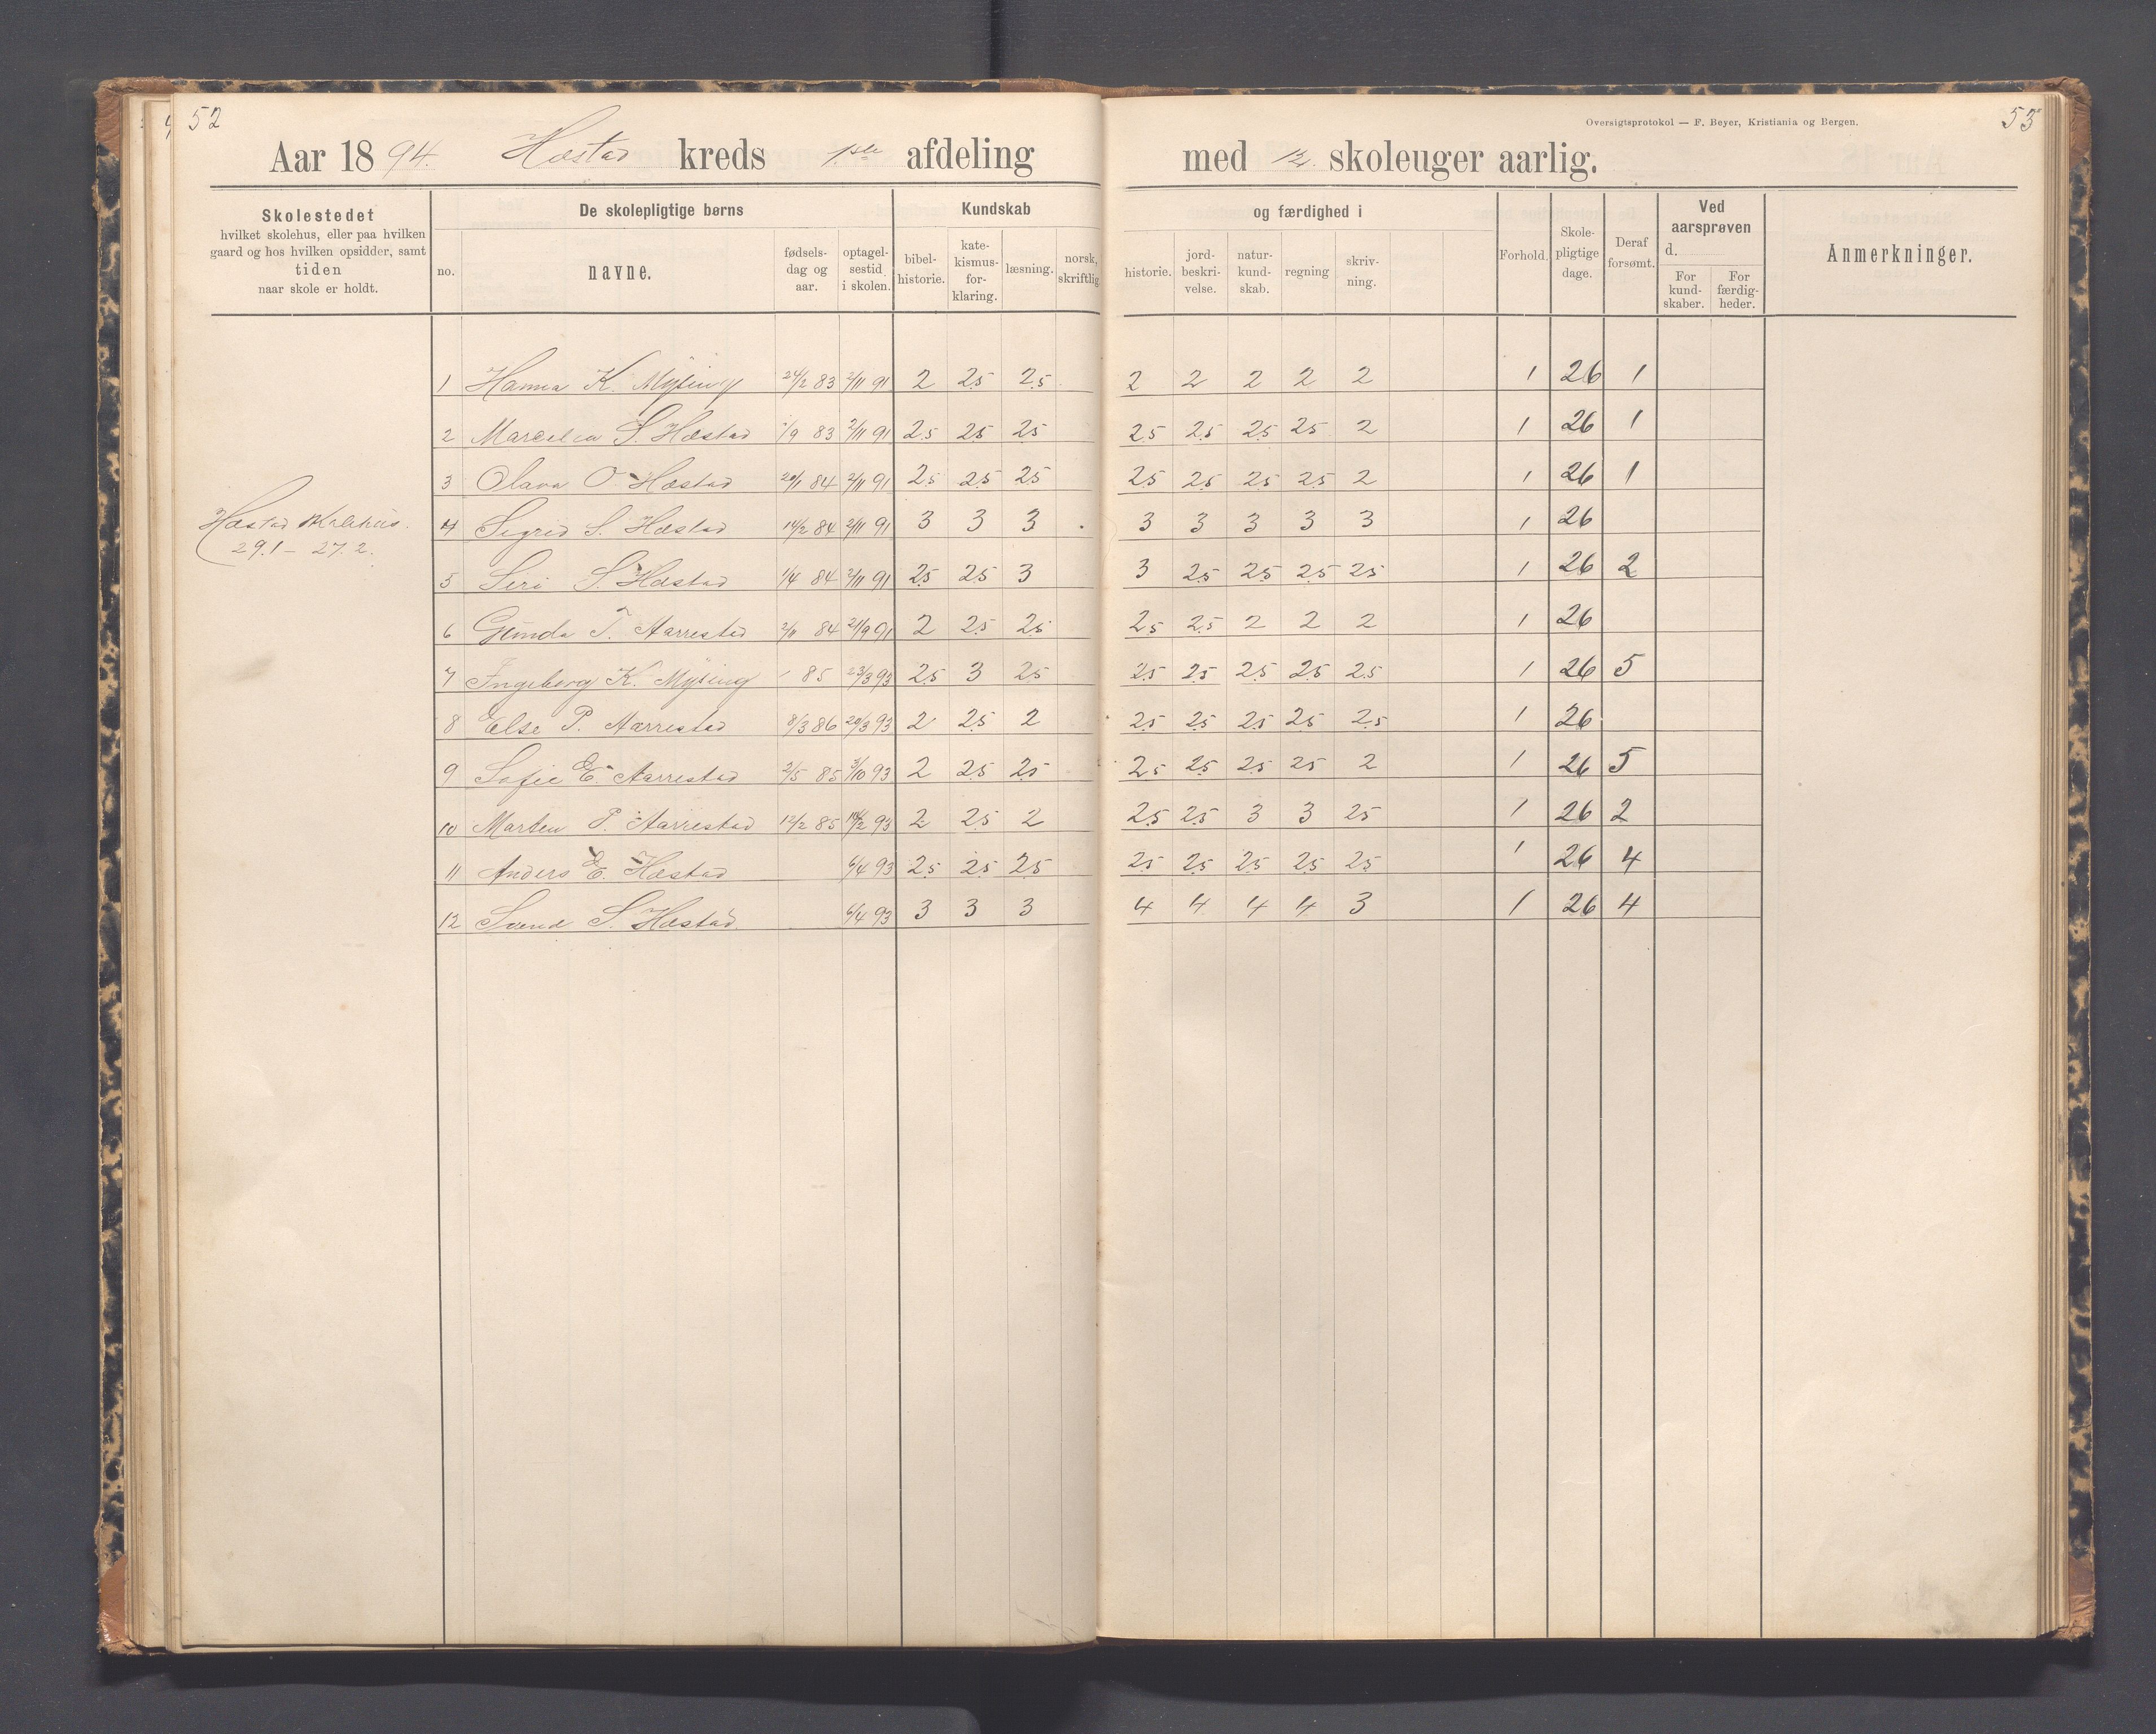 52
Aar 1894. Hæstad kreds 1ste afdeling
Skolestedet
hvilket skolehus, eller paa hvilken
gaard og hos hvilken opsidder, samt
tiden
naar skole er holdt.
De skolepligtige børns
no.
navne.
fødsels-
dag og
aar.
optagel-
sestid
i skolen.
Kundskab
bibel-
historie.
kate-
kismus-
for-
klaring.
læsning.
norsk,
skriftlig
Hæstad skolehus.
29.1 - 27.2.
1 Hanna K. Mysing 24/2 83 2/11 91 2 2.5 2.5
2 S. Hæstad /9 83 2/11 91 2.5 2.5 2.5
3 Olava O. Hæstad 20/1 84 2/11 91 2.5 2.5 2.5
4 Sigrid S. Hæstad 14/2 84 2/11 91 3 3 3
5 Siri S. Hæstad 1/4 84 2/11 91 2.5 2.5 3
6 Gunda T. Aarrestad 2/11 84 21/9 91 2 2.5 2.5
7 Ingeborg K. Mysing 85 23/3 93 2.5 3 2.5
8 Else P. Aarrestad 8/3 86 20/3 93 2 2.5 2
9 Sofie E. Aarrestad 2/5 85 3/10 93 2 2.5 2.5
10 Marten P. Aarrestad 12/2 85 14/2 93 2 2.5 2
11 Anders E. Hæstad 6/4 93 2.5 2.5 2.5
12 Svend S. Hæstad 6/4 93 3 3 3
53
Oversigtsprotokol — F. Beyer, Kristiania og Bergen.
med 12 skoleuger aarlig.
og færdighed i
historie.
jord-
beskri-
velse.
natur-
kund-
skab.
regning
skriv-
ning.
Forhold.
Skole-
pligtige
dage.
Deraf
forsømt.
Ved
aarsprøven
d.
For
kund-
skaber.
For
færdig-
heder.
Anmerkninger.
2 2 2 2 2 1 26 1
2.5 2.5 2.5 2.5 2 1 26 1
2.5 2.5 2.5 2.5 2 1 26 1
3 3 3 3 3 1 26
3 2.5 2.5 2.5 2.5 1 26 2
2.5 2.5 2 2 2 1 26
2.5 2.5 2.5 2.5 2.5 1 26 5
2.5 2.5 2.5 2.5 2.5 1 26
2.5 2.5 2.5 2.5 2 1 26 5
2.5 2.5 3 3 2.5 1 26 2
2.5 2.5 2.5 2.5 2.5 1 26 4
4 4 4 4 3 1 26 4